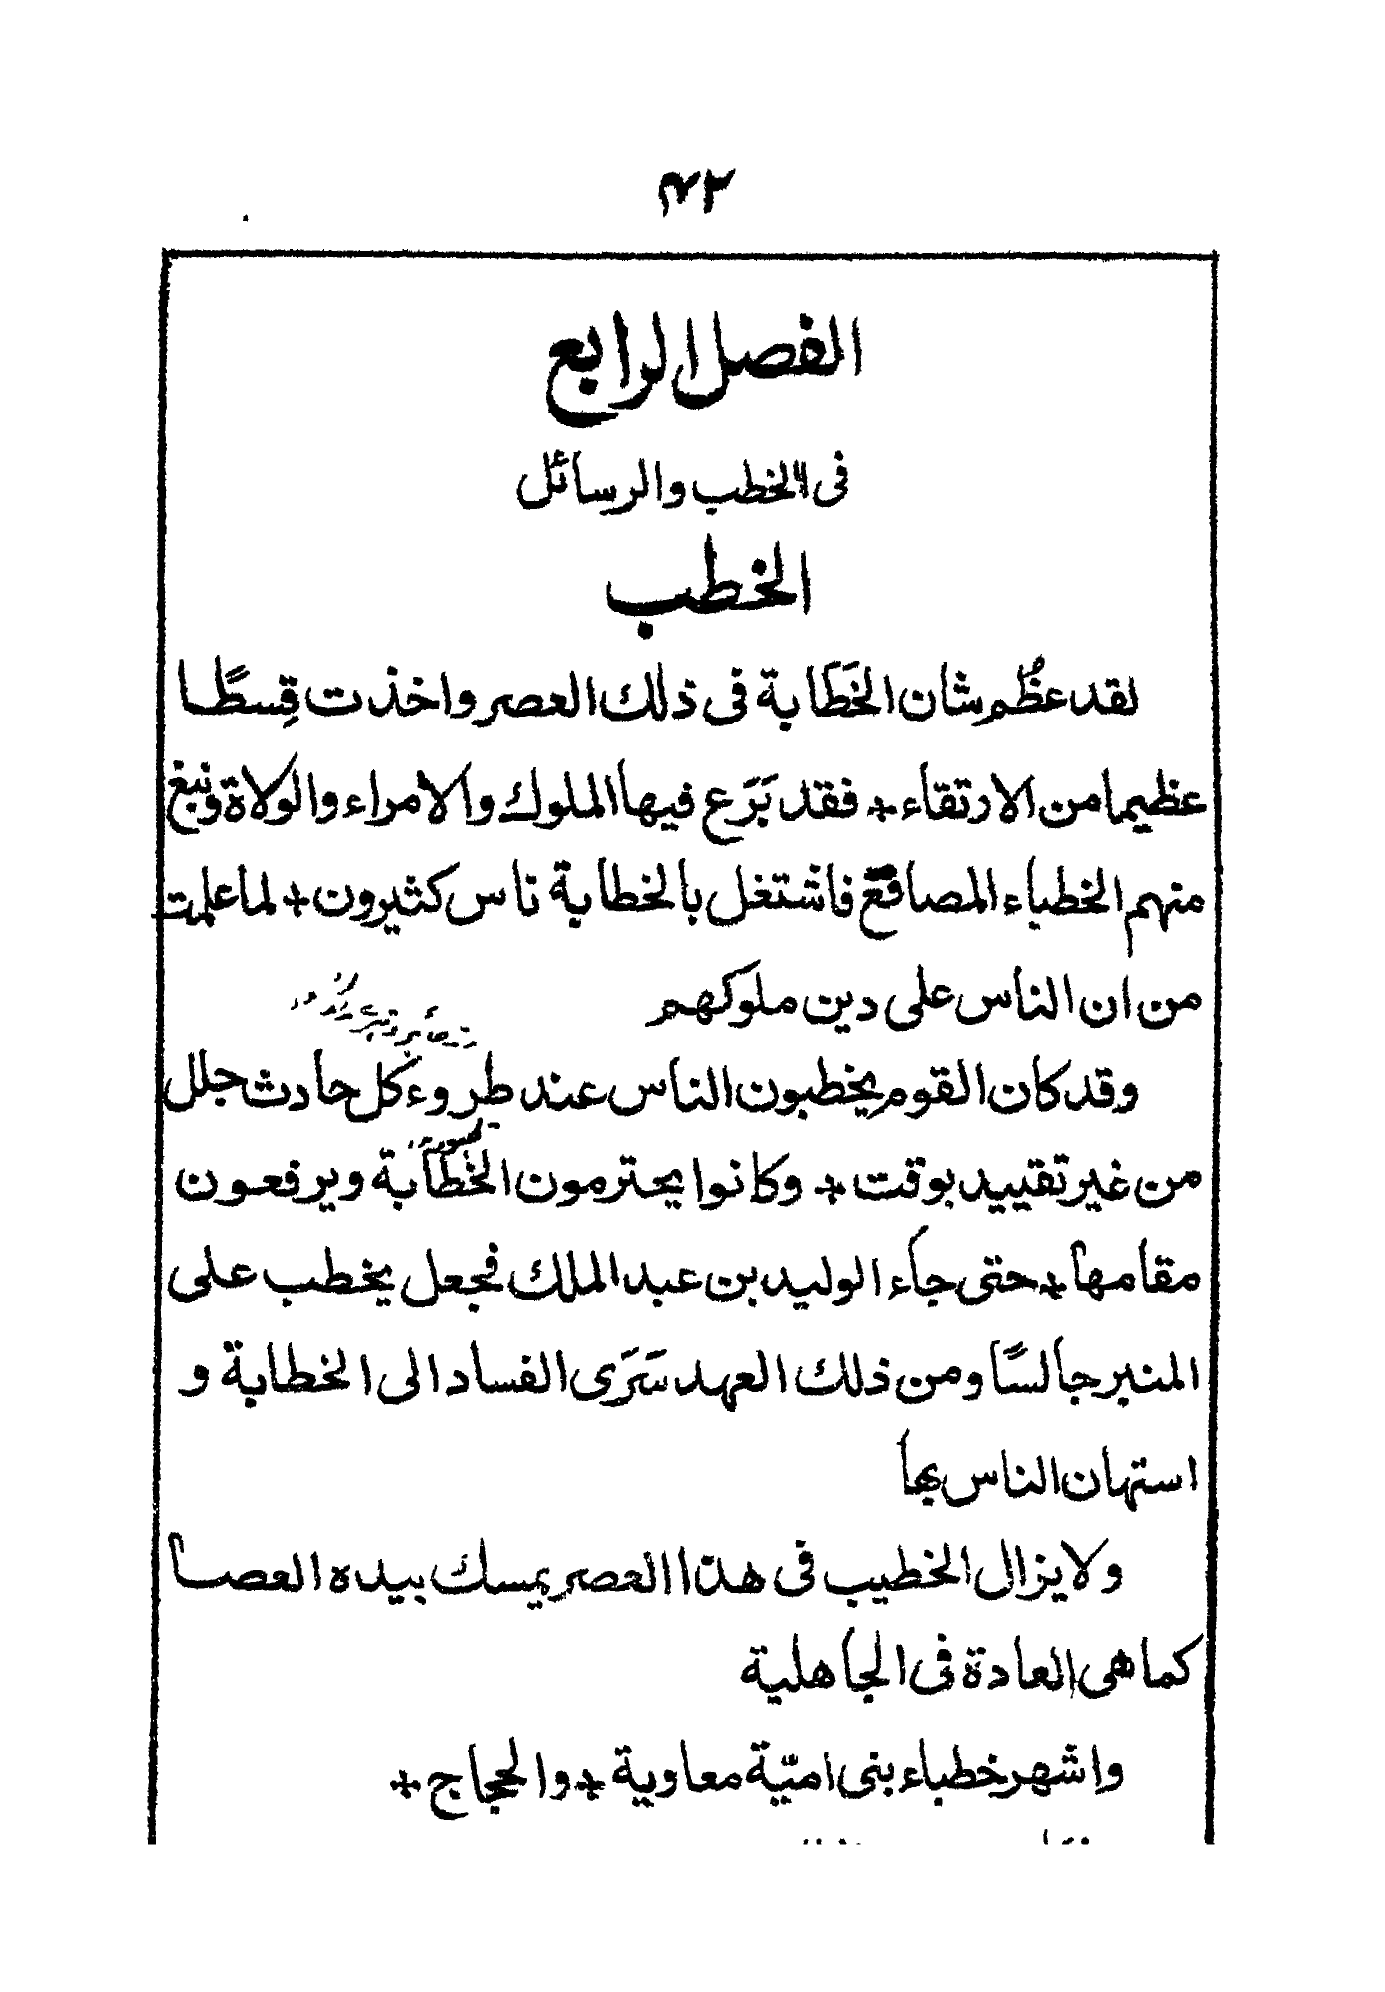 الفصل الرابع
فى الخطب والرسائل
الخطب
لقد عظُم شان الخَطَابة فى ذلك العصر واخذت قِسطًا
عظيما من الارتقاء + فقد بَرَع فيها الملوك والامراء والولاة ونبغ
منهم الخطباء المصاقع فاشتغل بالخطابة ناس كثيرون + لما علمت
من ان الناس على دين ملوكهم
وقد كان القوم يخطبون الناس عند طروء كل حادث جلل
من غير تقييد بوقت + وكانوا يحترمون الخَطَابة ويرفعون
مقامها + حتى جاء الوليد بن عبد الملك فجعل يخطب على
المنبر جالسًا ومن ذلك العهد سَرَى الفساد الى الخطابة و
استهان الناس بها
ولا يزال الخطيب فى هذا العصر يمسك بيده العصا
كما هى العادة فى الجاهلية
واشهر خطباء بنى اميّة معاوية + والحجاج +